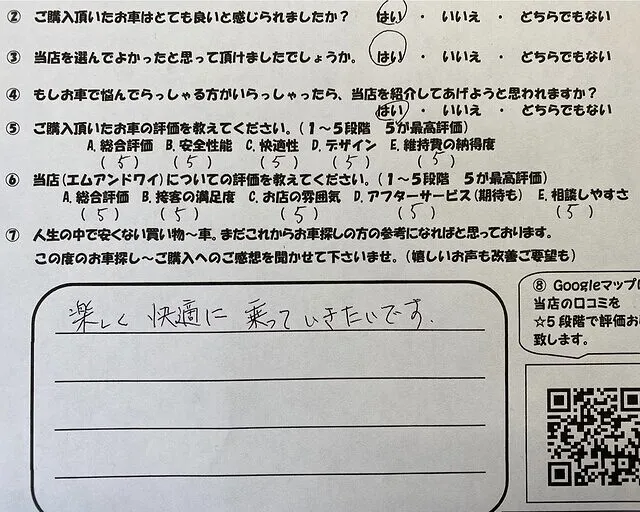 ② ご購入頂いたお車はとても良いと感じられましたか？ はい ・ いいえ ・ どちらでもない
③ 当店を選んでよかったと思って頂けましたでしょうか。 はい ・ いいえ ・ どちらでもない
④ もしお車で悩んでらっしゃる方がいらっしゃったら、当店を紹介してあげようと思われますか？
はい ・ いいえ ・ どちらでもない
⑤ ご購入頂いたお車の評価を教えてください。(1～5段階 5が最高評価)
A. 総合評価 B. 安全性能 C. 快適性 D. デザイン E. 維持費の納得度
(5) (5) (5) (5) (5)
⑥ 当店(エムアンドワイ)についての評価を教えてください。(1～5段階 5が最高評価)
A. 総合評価 B. 接客の満足度 C. お店の雰囲気 D. アフターサービス(期待も) E. 相談しやすさ
(5) (5) (5) (5) (5)
⑦ 人生の中で安くない買い物～車。まだこれからお車探しの方の参考になればと思っております。
この度のお車探し～ご購入へのご感想を聞かせて下さいませ。(嬉しいお声も改善ご要望も)
楽しく 快適に 乗って いきたいです.
⑧ Googleマップ
当店の口コミを
☆5段階で評価お
致します。